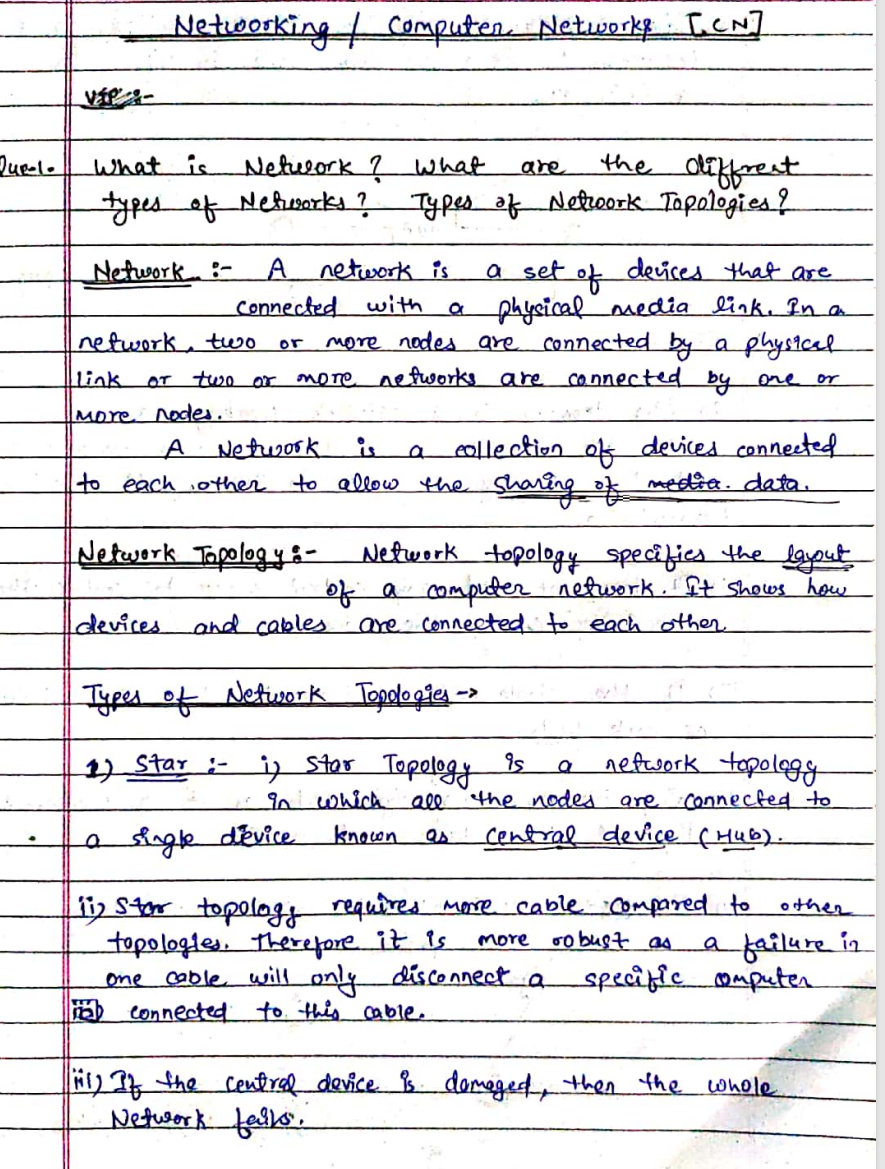 Networking / Computer Networks [CN]
VIP :-
Que-1. What is Network ? What are the diffrent
types of Networks ? Types of Network Topologies ?
Network :- A network is a set of devices that are
connected with a physical media link. In a
network, two or more nodes are connected by a physical
link or two or more networks are connected by one or
more nodes.
A Network is a collection of devices connected
to each other to allow the sharing of media. data.
Network Topology :- Network topology specifies the layout
of a computer network. It shows how
devices and cables are connected to each other
Types of Network Topologies ->
1) Star :- i) Star Topology is a network topology
in which all the nodes are connected to
a single device known as central device (Hub).
ii) Star topology requires more cable compared to other
topologies. Therefore it is more robust as a failure in
one cable will only disconnect a specific computer
connected to this cable.
iii) If the central device is damaged, then the whole
Network fails.